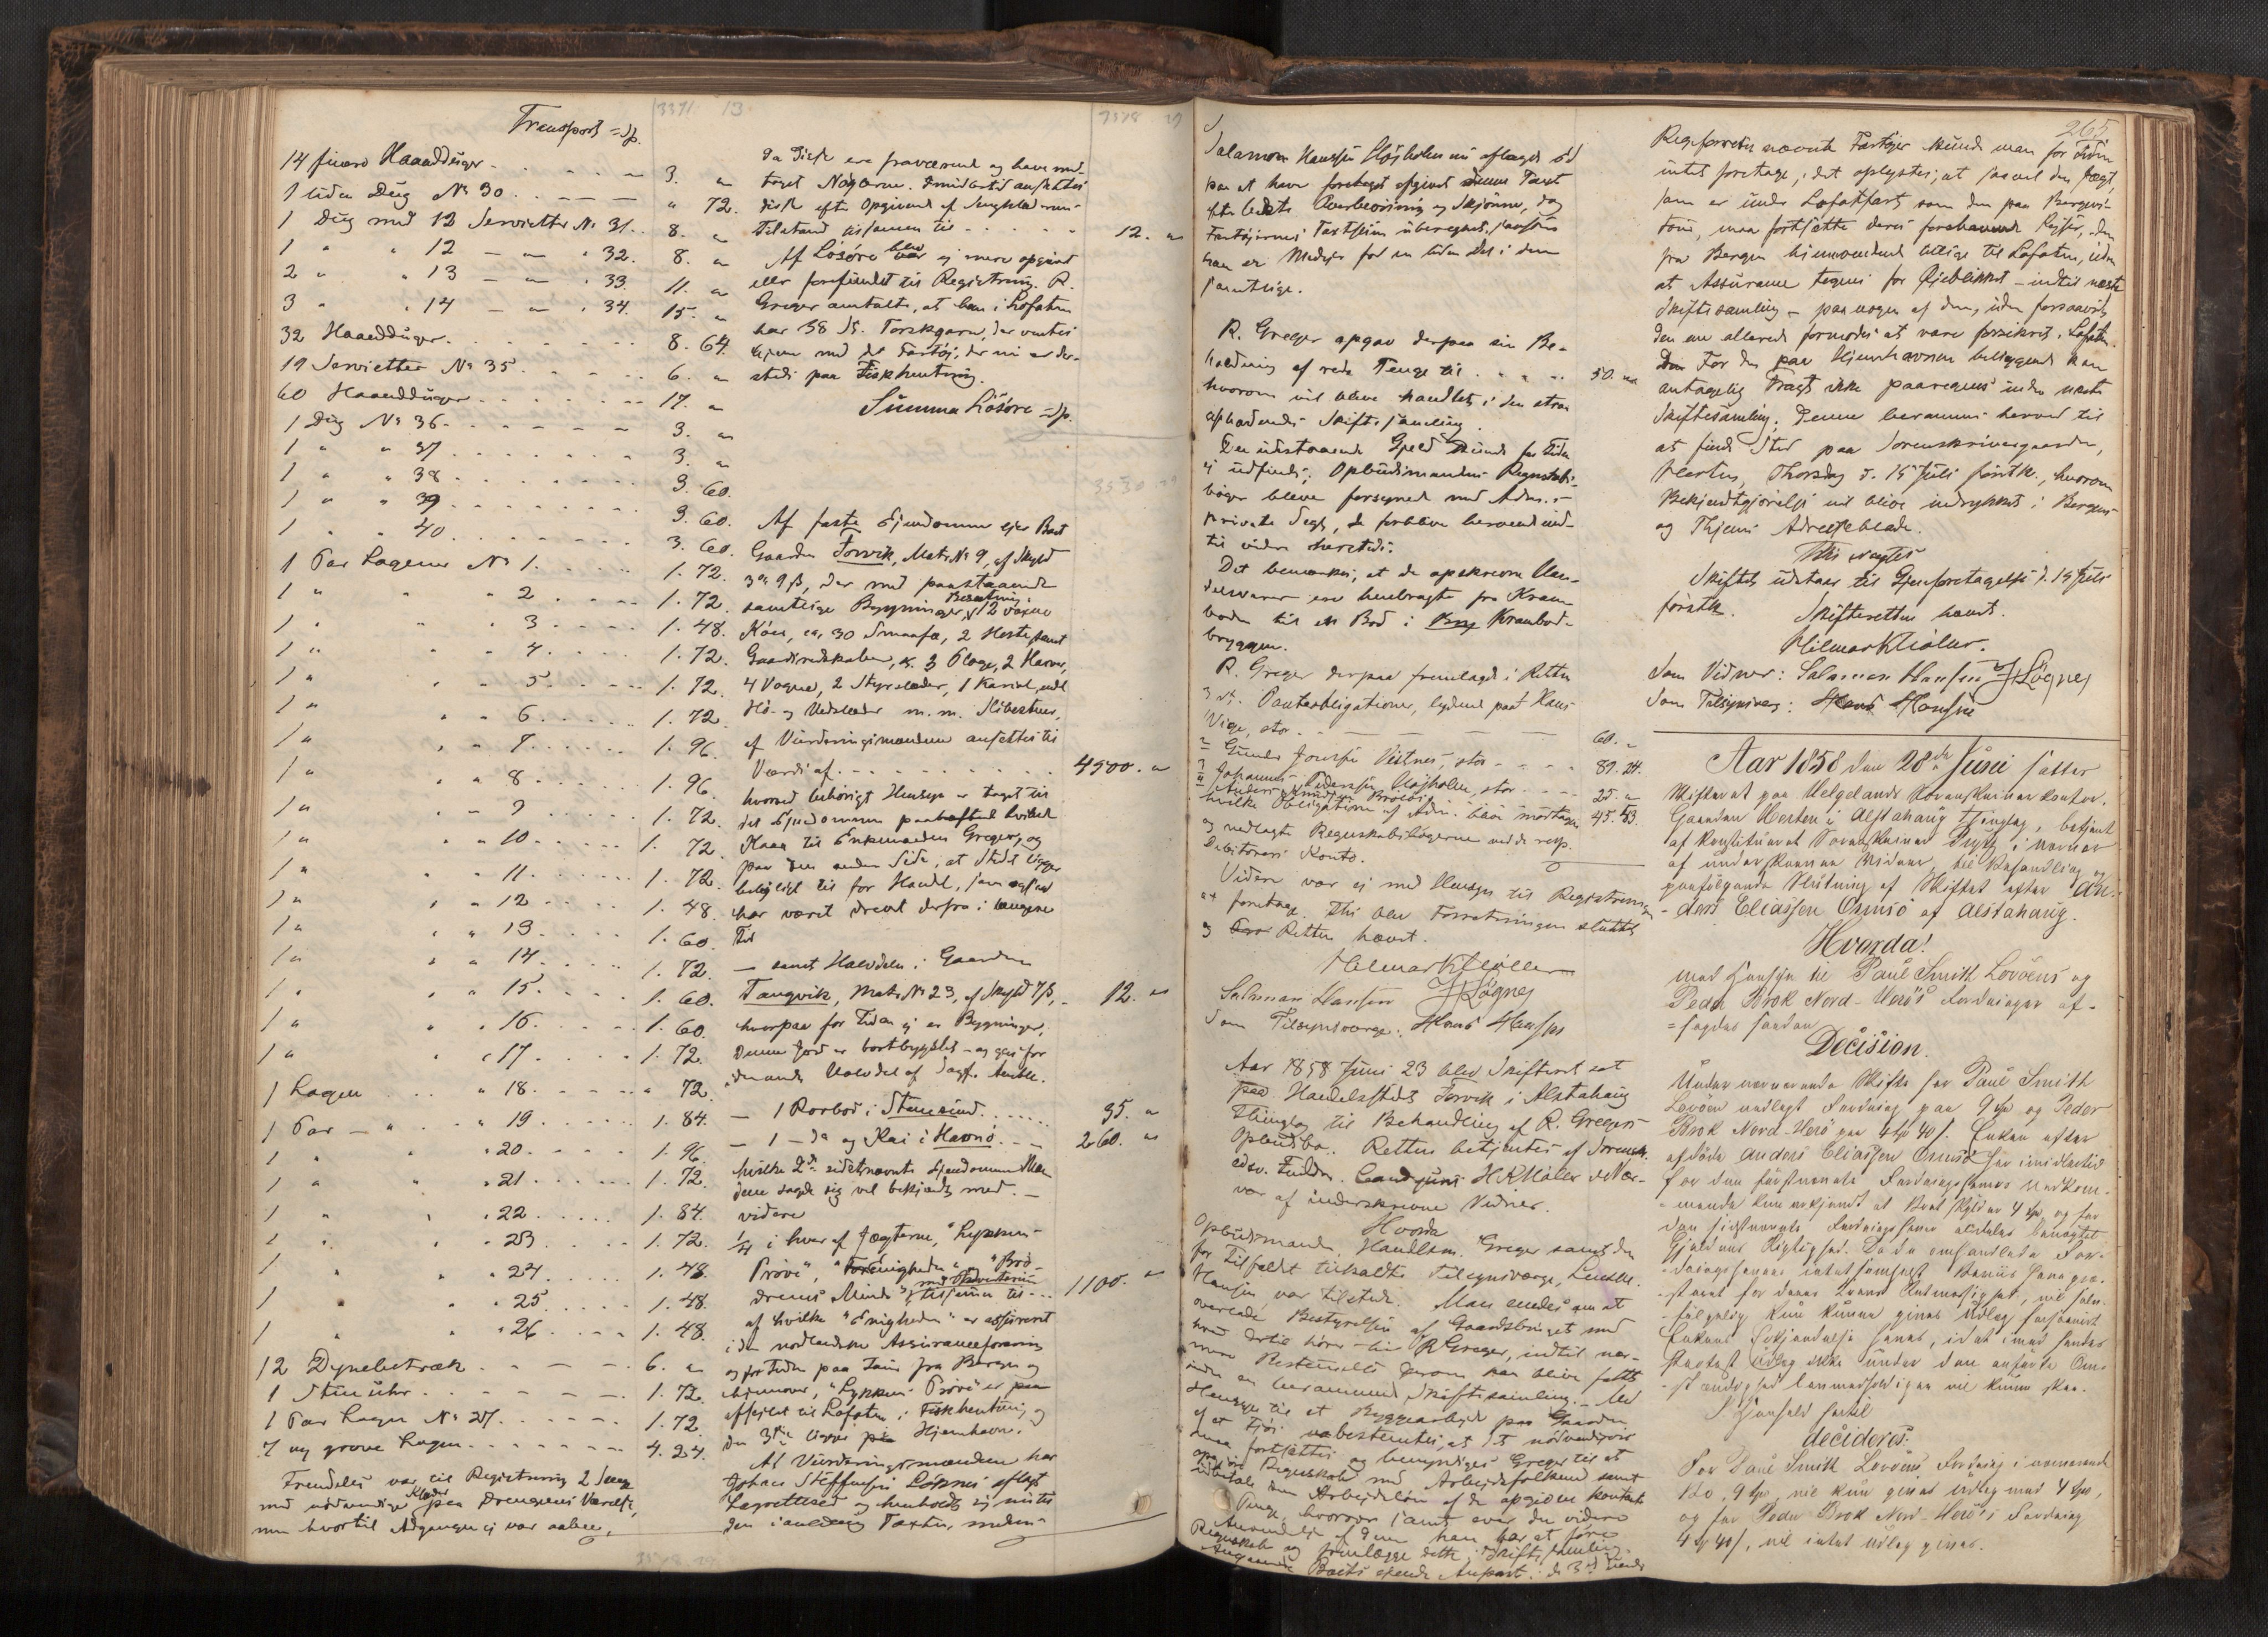 3371 13
Transport Sp.
14 finere Haandduger 3. "
1 liden Dug No 30 " 72.
1 Dug med 12 Servietter No 31. 8. "
1 " " 12 — " — " 32. 8. "
2 " " 13 — " — " 33. 11. "
3 " " 14 — " — " 34. 15. "
32 Haandduger 8. 64.
19 Servietter No 35 6. "
60 Haandduger 17. "
1 Dug No 36 3. "
1 " " 37 3. "
1 " " 38 3. 60.
1 " " 39 3. 60.
1 " " 40 3. 60.
1 Par Lagener No 1. 1. 72.
1 " " 2 1. 72.
1 " " 3 1. 48.
1 " " 4 1. 72.
1 " " 5 1. 72.
1 " " 6 1. 72.
1 " " 7 1. 96.
1 " " 8 1. 96.
1 " " 9 1. 72.
1 " " 10 1. 72.
1 " " 11 1. 72.
1 " " 12 1. 48.
1 " " 13 1. 60.
1 " " 14 1. 72.
1 " " 15 1. 60.
1 " " 16 1. 60.
1 " " 17 1. 72.
1 Lagen " 18 " 72.
1 Par — " " 19 1. 84.
1 " " 20 1. 96.
1 " " 21 1. 72.
1 " " 22 1. 84.
1 " " 23 1. 72.
1 " " 24 1. 48.
1 " " 25 1. 48.
1 " " 26 1. 48.
12 Dynebetræk 6. "
1 Stueuhr 1. 72.
1 Par Lagen No 27 1. 72
7 ny grove Lagen 4. 24.
Fremdeles var til Registrering 2 Senge
med nødvendige Klæder paa Drengenes Værelse,
men hvortil Adgangen ej var aaben,
7378 29
da Disse ere fraværende og have med-
taget Nøglerne. Imidlertid ansættes
disse efter Opgivende af Sengklædernes
Tilstand tilsammen til 12. "
Af Løsøre blev ej mere opgivet
eller forefundet til Registrering. R.
Greger anmeldte, at han i Lofoten
har 38 St. Torskgarn, der ventes
hjem med det Fartøj, der nu er der-
steds paa Fiskhentning.
Summa Løsøre Sp.
Af faste Ejendomme ejer Boet
Gaarden Forvik, Matr. No 9, af Skyld
3 9 ß, der med paastaaende
samtlige Bygninger, Besætning, 12 voxne
Køer, ca. 30 Smaafæ, 2 Heste samt
Gaardsredskaber, s. 3 Ploge, 2 Harver,
4 Vogne, 2 Styrslæder, 1 Kariol, endl
Hø- og Vedslæder m. m. Slibestene,
af Vurderingsmændene ansættes til
Værdi af 4500. "
hvorved behørigt Hensyn er taget til
det Ejendommen paaheftede livsvarige
Kaar til Enkemadam Greger, og
paa den anden Side, at Stedet ligger
belejligt til for Handel, som ogsaa
har været drevet derfra i længere
Tid
— samt Halvdelen i Gaarden
Tangvik, Matr. No 23, af Skyld 7 ß, 12. "
hvorpaa for Tiden ej er Bygninger;
Denne Jord er bortbygslet - og ejes for
den anden Halvdel af
— 1 Rorbod i Stensund 35. "
— 1 — Do og Kai i Havnø 260. "
hvilke 2de sidstnævnte Ejendomme Mæn-
dene sagde sig vel bekjendt med. —
videre
¼ i hver af Jægterne, "Lykkens
Prøve", "Enigheden" og "Brø-
drenes Minde" med Inventarium tilsammen til 1100. "
af hvilke "Enigheden" er assureret
i den nordlandske Assuranceforening
og for Tiden paa Turen fra Bergen og
hjemover, "Lykkens Prøve" er paa
afsejlet til Lofoten i Fiskhentning og
den 3die ligger paa Hjemhavn.
Af Vurderingsmændene har
Johan Steffensen Løknes aflagt
Lagrettesed og henholdt sig
den Taxten, meden-
3578 29
265
Salamon Hansen Højholm nu aflagde Ed
paa at have foretaget opgivet denne Taxt
efter bedste Overbevisning og Skjønne, dog
Fartøjernes Taxtsum uberegnet, saasom
han er Medejer for en liden Del i dem
samtlige.
R. Greger opgav derpaa sin Be-
holdning af rede Penge til 50. "
hvorom vil blive handlet i den strax
afholdende Skiftesamling.
Den udestaaende Gjeld kunde for Tiden
ej udfindes; Opbudsmandens Regnskabs-
bøger bleve forsynede med Adm.s
private Segl, de forblive beroende ind-
til videre hersteds.
Det bemærkes, at de opskrevne Han-
delsvarer ere henbragte fra Kram-
boden til en Bod i Kramb-
bryggen.
R. Greger derpaa fremlagde i Retten
3 st. Panteobligationer, lydende paa Hans
Vige, stor 60. "
Gunder Josefsen Vistnes, stor 89. 24.
Johannes Pedersen Højholm, stor 25. "
Anders Knudsen 45. 53.
hvilke Obligationer af Adm. blev modtagne
og nedlagte Regnskabsbøgerne ved de resp.
Debitorers Konto.
Videre var ej med Hensyn til Registreringen
at foretage. Thi blev Forretningen sluttet
og Retten hævet.
Hilmar K Møller
Salmon Hansen J Løgnes
Som Tilsynsværge: Hans Hansen
Aar 1858 Juni 23 blev Skifteret sat
paa Handelsstedet Forvik i Alstahaug
Thinglag til Behandling af R. Gregers
Opbudsbo. Retten betjentes af Sorensk.
edsv. Fuldm. Cand. juris H K Møller i Nær-
vær af underskrevne Vidner.
Hvorda
Opbudsmanden, Handlsm. Greger samt den
for Tilfældet tilkaldte Tilsynsværge, Lensm.
Hansen, var tilstede. Man enedes om at
overlade Bestyrelsen af Gaardsbruget med
hvad dertil hører til R Greger, indtil nær-
mere Bestemmelse herom kan blive fattet
inden en berammende Skiftesamling. — Med
Hensyn til et Byggearbejde paa Gaarden
af et Fjøs bestemtes, at det nødvendigvis
maa fortsættes og bemyndiges Greger til at
Regnskab med Arbejdsfolkene samt
udbetale dem Arbejdsløn af de opgivne kontante
Penge, hvorover samt over den videre
Anvendelse af dem han har at føre
Regnskab og fremlægge dette i Skiftesamling.
Angaaende Boets ejende Anpart i de 3 i
Registeret nævnte Fartøjer kunde man for Tiden
intet foretage; det oplystes, at saavel den Jægt,
som er under Lofotfart som den paa Bergens-
tour, maa fortsætte deres forehavende Rejser, den
fra Bergen hjemvendende tillige til Lofoten, uden
at Assurance tegnes for Øjeblikket - indtil næste
Skiftesamling - paa nogen af dem, uden forsaavidt
den ene allerede formodes at være forsikret i Lofoten.
For den paa Hjemhavnen beliggende kan
antagelig Fragt ikke paaregnes inden næste
Skiftesamling. Denne berammes herved til
at finde Sted paa Sorenskrivergaarden,
Herten, Thorsdag d. 15 Juli førstk., hvorom
Bekjendtgjørelse vil blive indrykket i Bergens
og Thjems Adresseblade.
Thi
Skiftet udstaar til Gjenforetagelse d. 15 Juli
førstk. Skifteretten hævet.
Hilmar K Møller.
Som Vidner: Salamon Hansen J Løgnes
Som Tilsynsværg: Hans Hansen
Aar 1858 den 28de Juni sattes
Skifteret paa Helgelands Sorenskriver kontor,
Gaarden Herten i Alstahaug Thinglag, betjent
af konstitueret Sorenskriver Prytz i Nærvær
af underskrevne Vidner, til Behandling og
paafølgende Slutning af Skiftet efter An-
ders Eliassen Oxnsø af Alstahaug.
Hvorda!
med Hensyn til Paul Smith Lovøens og
Peder Brok Nord-Herø's Fordringer af-
sagdes saadan
Decision.
Under nærværende Skifte har Paul Smith
Lovøen nedlagt Fordring paa 9 Sp og Peder
Brok Nord-Herø paa 4 Sp 40 ß. Enken efter
afdøde Anders Eliassen Oxnsø har imidlertid
for den førstnævnte Fordringshavers Vedkom-
mende kun erkjendt at Boet skylder 4 Sp, og for
den sidstnævnte Fordringshaver aldeles benægtet
Gjældens Rigtighed. Da de omhandlede For-
dringshavere intetsomhelst Beviis have præ-
steret for deres Kravs Retmæssighed, vil føl-
gelig kun kunne gives Udlæg forsaavidt
Enkens Erkjendelse haves, idet imod hendes
Protest Udlæg ikke under den anførte Om-
stændighed lovmedholdigen vil kunne skee.
I Henhold hertil
decideres:
For Paul Smith Lovøens Fordring i nærværende
Bo, 9 Sp, vil kun gives Udlæg med 4 Sp,
og for Peder Brok Nord-Herø's Fordring
4 Sp 40 ß, vil intet Udlæg gives.